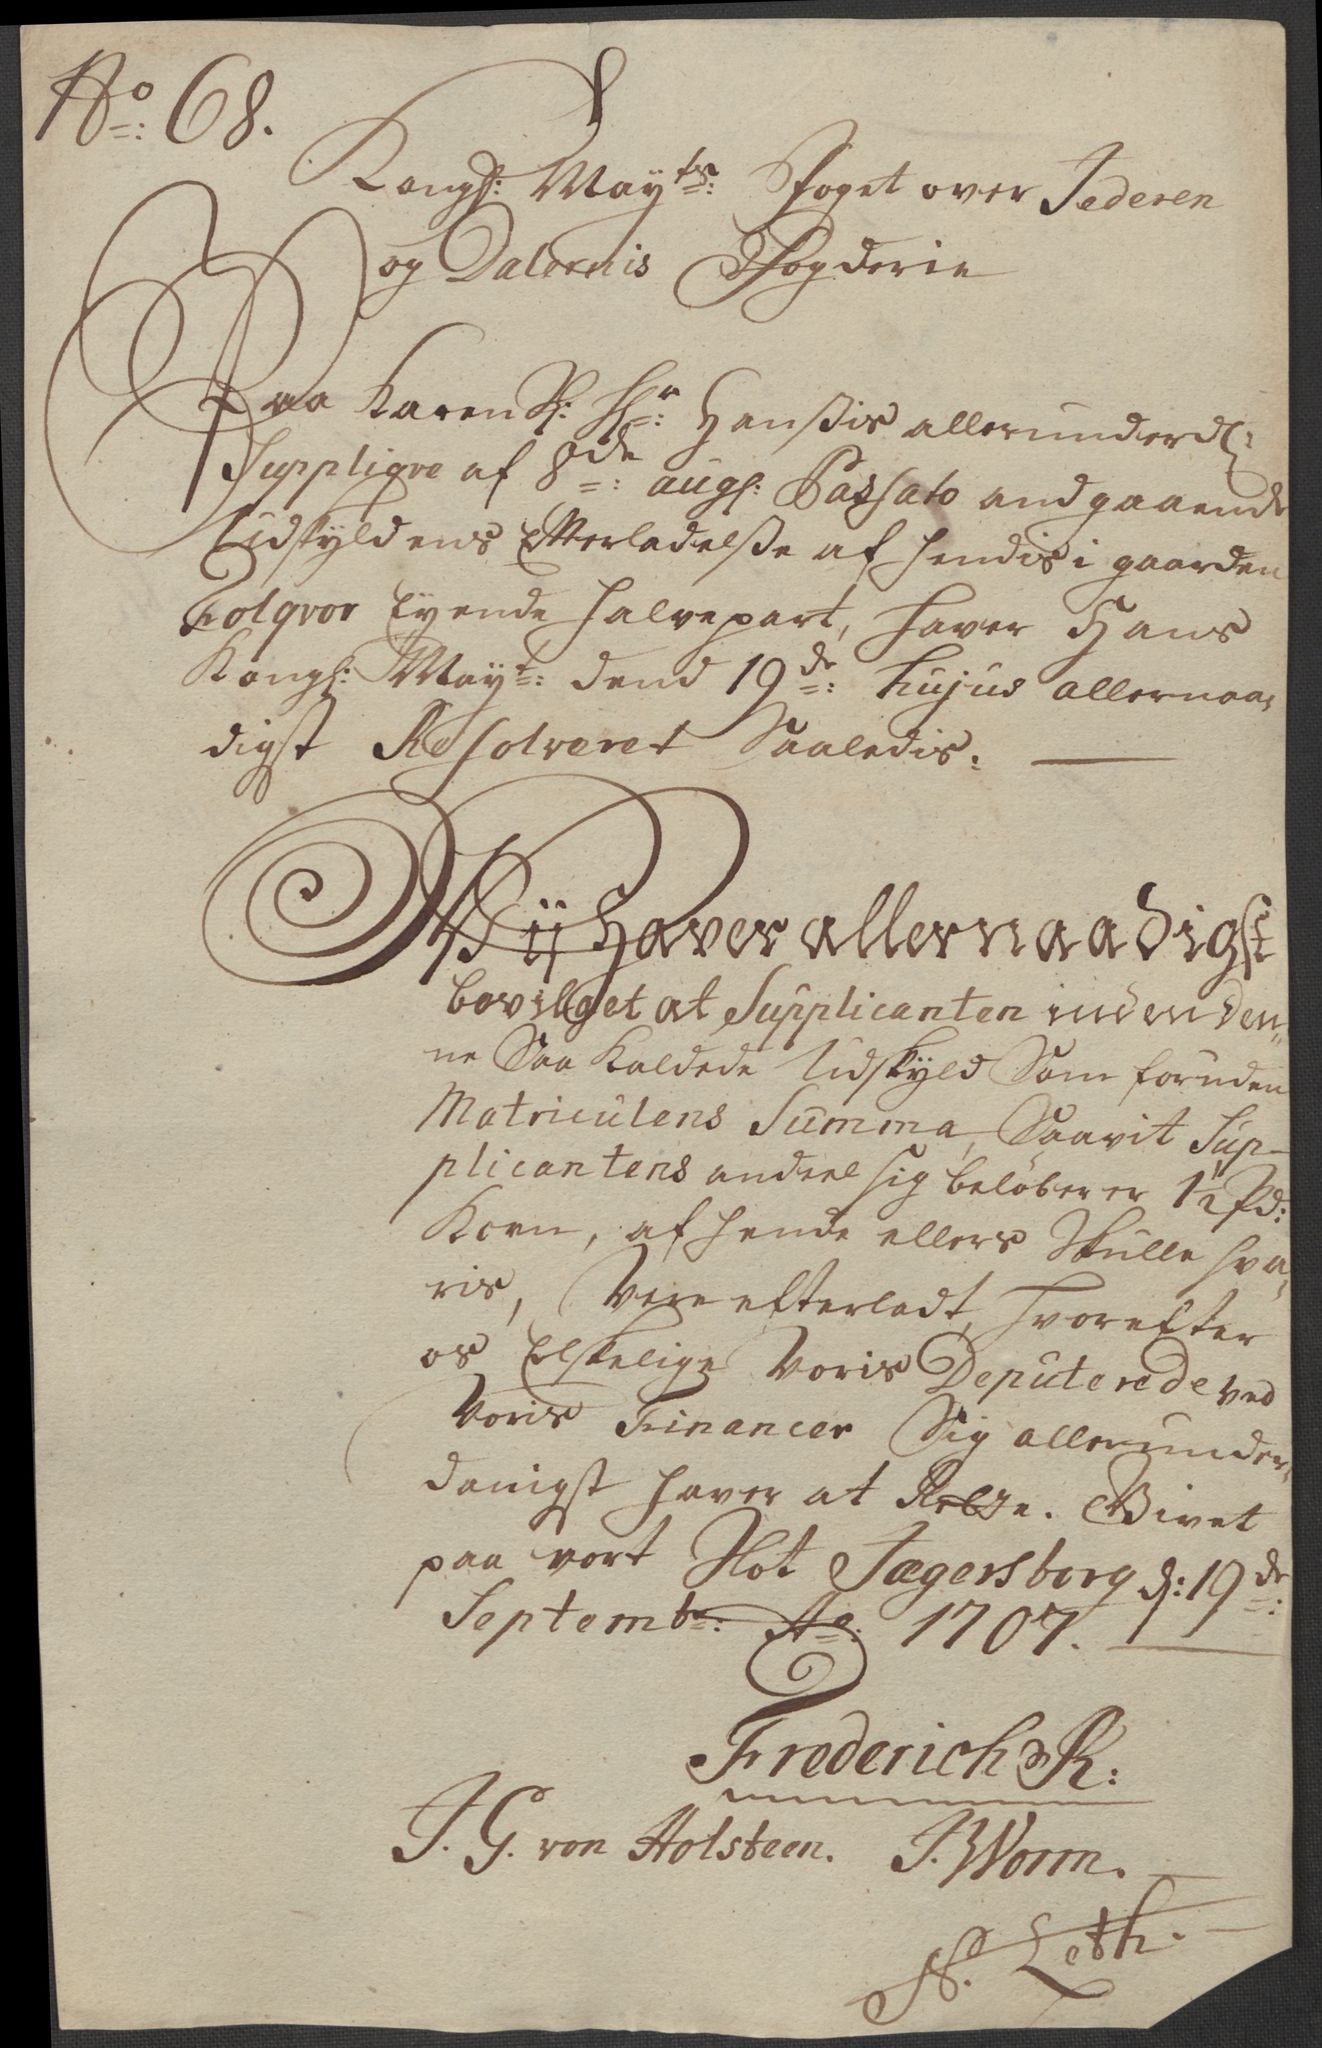 No: 68.
Kongl: Mayts: Foget over Jederen
og Dalernis Fogderie
Paa Karen Sl: Hr: Hanßis allerunderd:
Suppliqve af 8de: augs: Passato andgaaende
Udskyldens Efterladelße af hendis i gaarden
Tolqvor Eyende halvepart, haver Hans
Kongl: Mayt: dend 19de: hujus allernaa,
digst Resolveret Saaledis:
Wii Haver allernaadigst
bevilget at Supplicanten inden den,,
ne Saa Kaldede Udskyld Som foruden
Matriculens Summa, Saavit Sup-
plicantens andeel sig beløber er 1½ Pd:
Korn, af hende ellers Skulle sva,
ris, Være efterladt, hvorefter
os Elskelige Voris Deputerede ved
Voris Financer Sig allerunder,
danigst haver at Rette. Givet
paa vort Slot Jægersborg d: 19de:
Septembr: Ao: 1707.
Frederich R:
J. G. von Holsteen. J. Worm.
N. Leth.